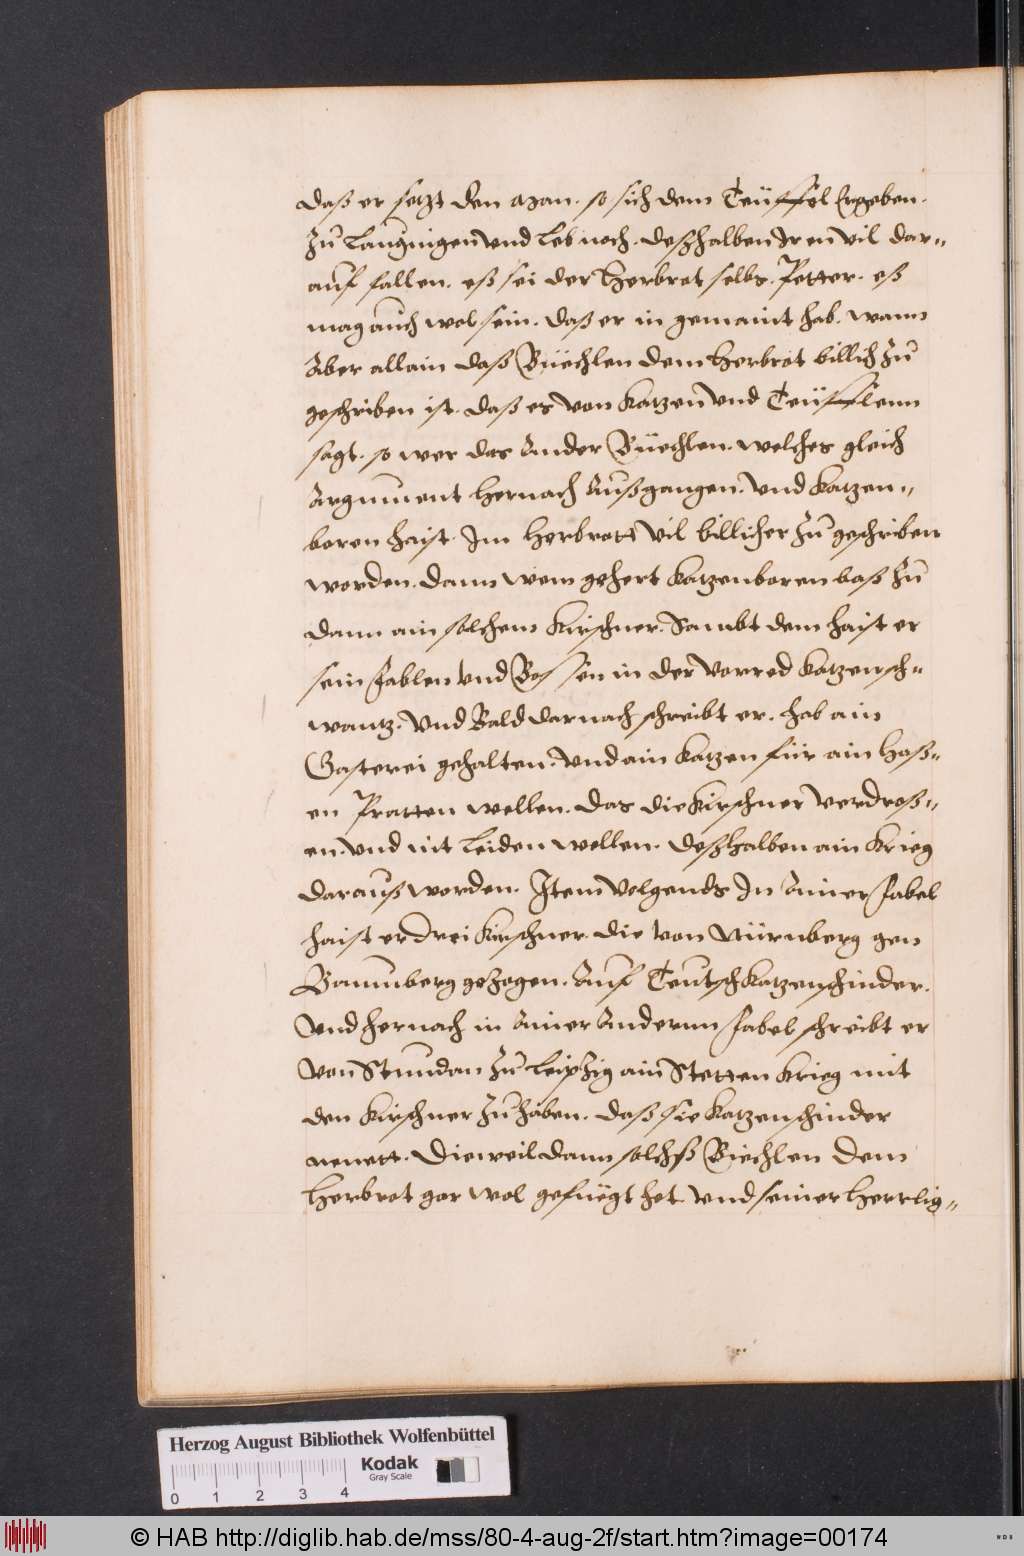 daß er setzt den man. so sich dem Teüffel Ergeben.
Zu Lauginigen Vnd leb noch. deßhalben Iren vil dar=
auf fallen. eß sei der Herbrot selbs. Petter. eß
mag auch wol sein. daß er in gemaint hab. wann
Aber allain daß Büechlen dem Herbrot billich Zu
geschriben ist. daß es von Katzen Vnd Teüfflenn
sagt. so wer das Ander Büechlen. welches gleich
Argument hernach Außgangen. Vnd Katzen=
boren haist. Im Herbrott Vil billicher Zu geschriben
worden. dann wem gehert Katzenboren baß Zu
dann ain solchem Kirschner. Sambt dem haist er
sein Fablen Vnd Bossen in der Vorred Katzensch=
wantz. Vnd Bald darnach schreibt er. hab ain
Gasterei gehalten. Vnd ain Katzen für ain Haß=
en Pratten wellen. das die Kirschner Verdroß=
en. Vnd nit Leiden wellen. deßhalben ain Krieg
darauß worden. Item Volgends In Ainer Fabel
haist er drei Kirschner. die von Nürnberg gen
Bamberg gezogen. Auf Teutsch Katzenschinder.
Vnd hernach in Ainer Andernn Fabel schreibt er
Von Stundan Zu Leipzig ain Stetten Krieg mit
den Kirschner Zu haben. daß sie Katzenschinder
nenett. Dieweil dann solchß Biechlen dem
Herbrot gar wol gefuegt het Vnd seiner Herrlig=
Herzog August Bibliothek Wolfenbüttel
Kodak
Gray Scale
0 1 2 3 4
© HAB http://diglib.hab.de/mss/80-4-aug-2f/start.htm?image=00174